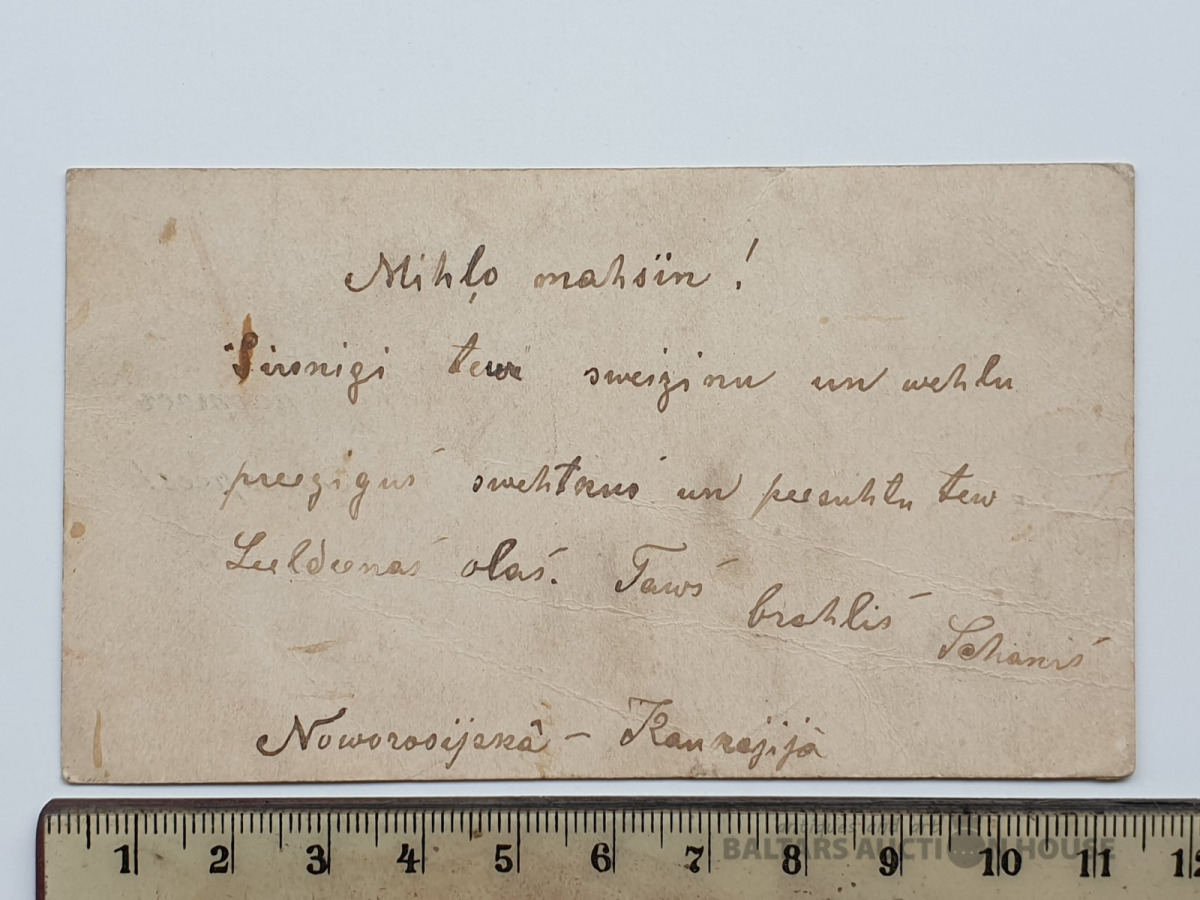 Mihļo mahsiņ!
Sirsnigi tew sweizinu un wehlu
preezigus swehtkus un peesuhtu tew
Leeldeenas olas. Taws brahlis Schanis
Noworosijskâ - Kaukazijâ
1 2 3 4 5 6 7 8 9 10 11 12
antiques and art
BALTARS AUCTION HOUSE